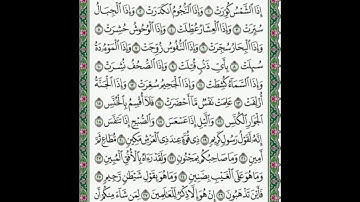 إِذَا الشَّمْسُ كُوِّرَتْ ۝ وَإِذَا النُّجُومُ انكَدَرَتْ ۝ وَإِذَا الْجِبَالُ
سُيِّرَتْ ۝ وَإِذَا الْعِشَارُ عُطِّلَتْ ۝ وَإِذَا الْوُحُوشُ حُشِرَتْ ۝
وَإِذَا الْبِحَارُ سُجِّرَتْ ۝ وَإِذَا النُّفُوسُ زُوِّجَتْ ۝ وَإِذَا الْمَوْءُودَةُ
سُئِلَتْ ۝ بِأَيِّ ذَنْبٍ قُتِلَتْ ۝ وَإِذَا الصُّحُفُ نُشِرَتْ ۝
وَإِذَا السَّمَاءُ كُشِطَتْ ۝ وَإِذَا الْجَحِيمُ سُعِّرَتْ ۝ وَإِذَا الْجَنَّةُ
أُزْلِفَتْ ۝ عَلِمَتْ نَفْسٌ مَّا أَحْضَرَتْ ۝ فَلَا أُقْسِمُ بِالْخُنَّسِ ۝
الْجَوَارِ الْكُنَّسِ ۝ وَاللَّيْلِ إِذَا عَسْعَسَ ۝ وَالصُّبْحِ إِذَا تَنَفَّسَ ۝
إِنَّهُ لَقَوْلُ رَسُولٍ كَرِيمٍ ۝ ذِي قُوَّةٍ عِندَ ذِي الْعَرْشِ مَكِينٍ ۝ مُّطَاعٍ ثَمَّ
أَمِينٍ ۝ وَمَا صَاحِبُكُم بِمَجْنُونٍ ۝ وَلَقَدْ رَآهُ بِالْأُفُقِ الْمُبِينِ ۝
وَمَا هُوَ عَلَى الْغَيْبِ بِضَنِينٍ ۝ وَمَا هُوَ بِقَوْلِ شَيْطَانٍ رَّجِيمٍ ۝
فَأَيْنَ تَذْهَبُونَ ۝ إِنْ هُوَ إِلَّا ذِكْرٌ لِّلْعَالَمِينَ ۝ لِمَن شَاءَ مِنكُمْ أَن